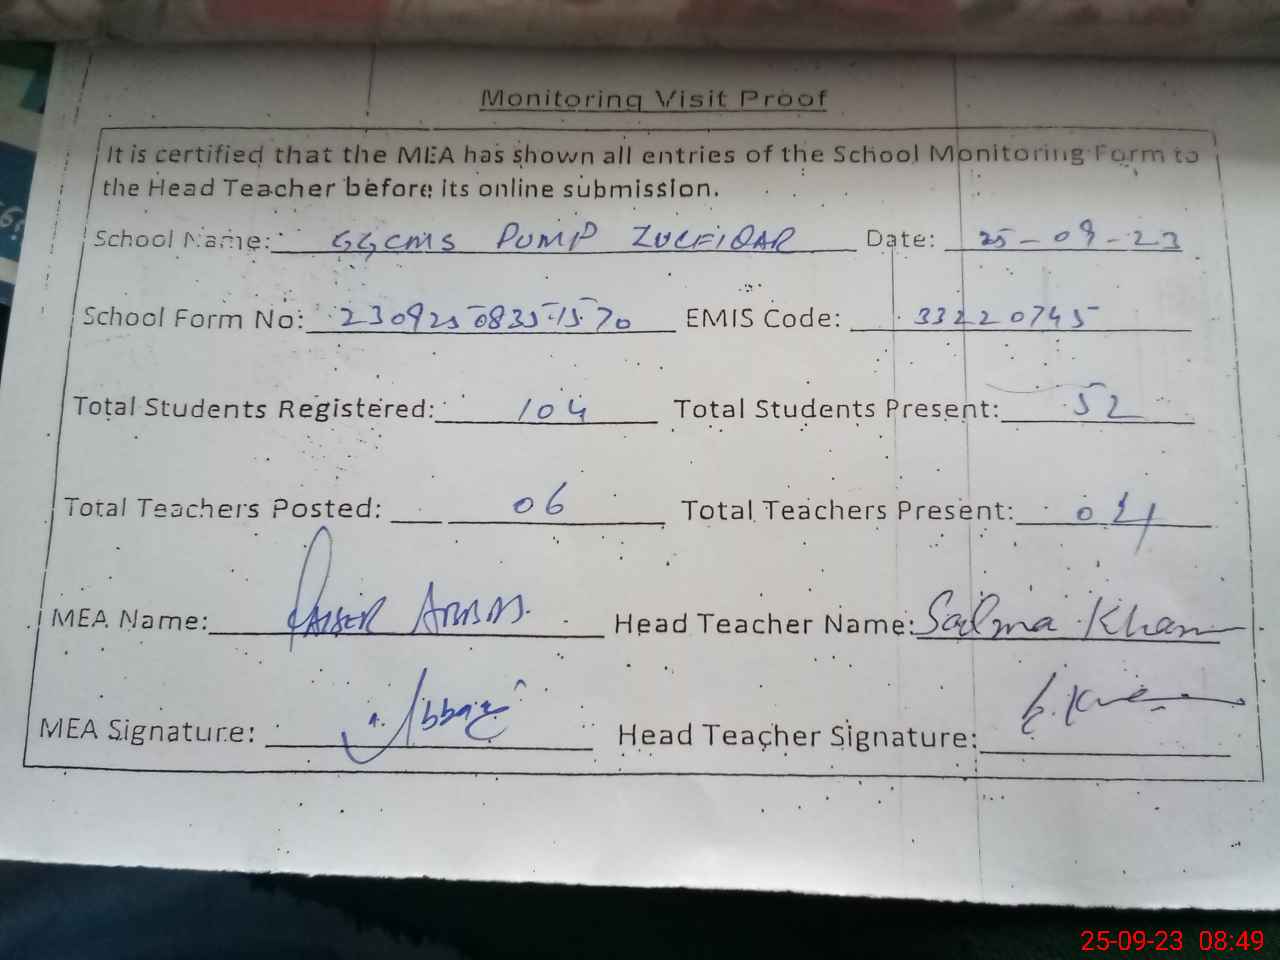 Monitoring Visit Proof
It is certified that the MEA has shown all entries of the School Monitoring Form to
the Head Teacher before its online submission.
School Name: GGCMS PUMP ZULFIQAR Date: 25-09-23
School Form No: 23092508351570 EMIS Code: 33220745
Total Students Registered: 104 Total Students Present: 52
Total Teachers Posted: 06 Total Teachers Present: 04
MEA Name: QAISER ABBAS Head Teacher Name: Salma Khan
MEA Signature: Abbas Head Teacher Signature:
25-09-23 08:49